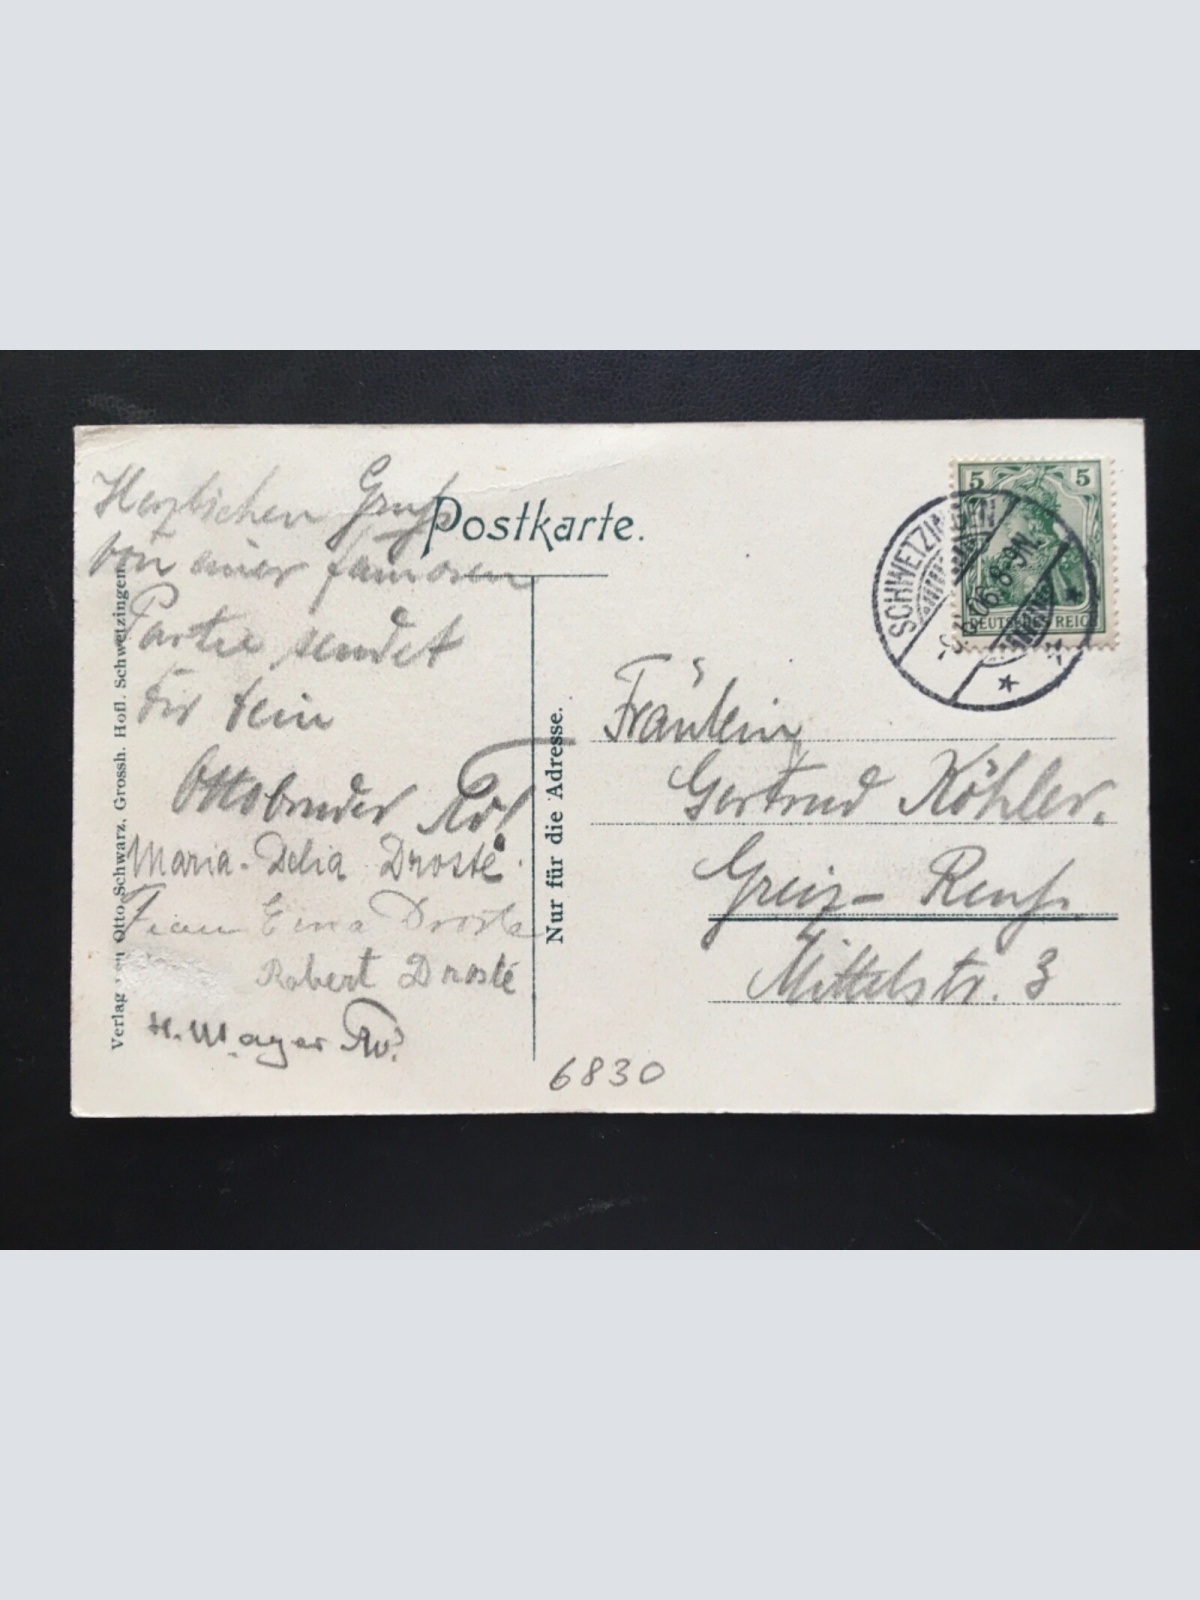 Herzlichen Gruß
von einer famosen
Partie sendet
Dir Dein
Ottobruder
Maria-Delia Drosté.
Frau Erna Droste
Robert Drosté
H. Mayer
Verlag von Otto Schwarz, Grossh. Hofl. Schwetzingen
Postkarte.
Nur für die Adresse.
5 5
DEUTSCHES REICH
SCHWETZINGEN
06. 8-9N.
Fräulein
Gertrud Köhler.
Greiz - Reuß.
Mittelstr. 3
6830